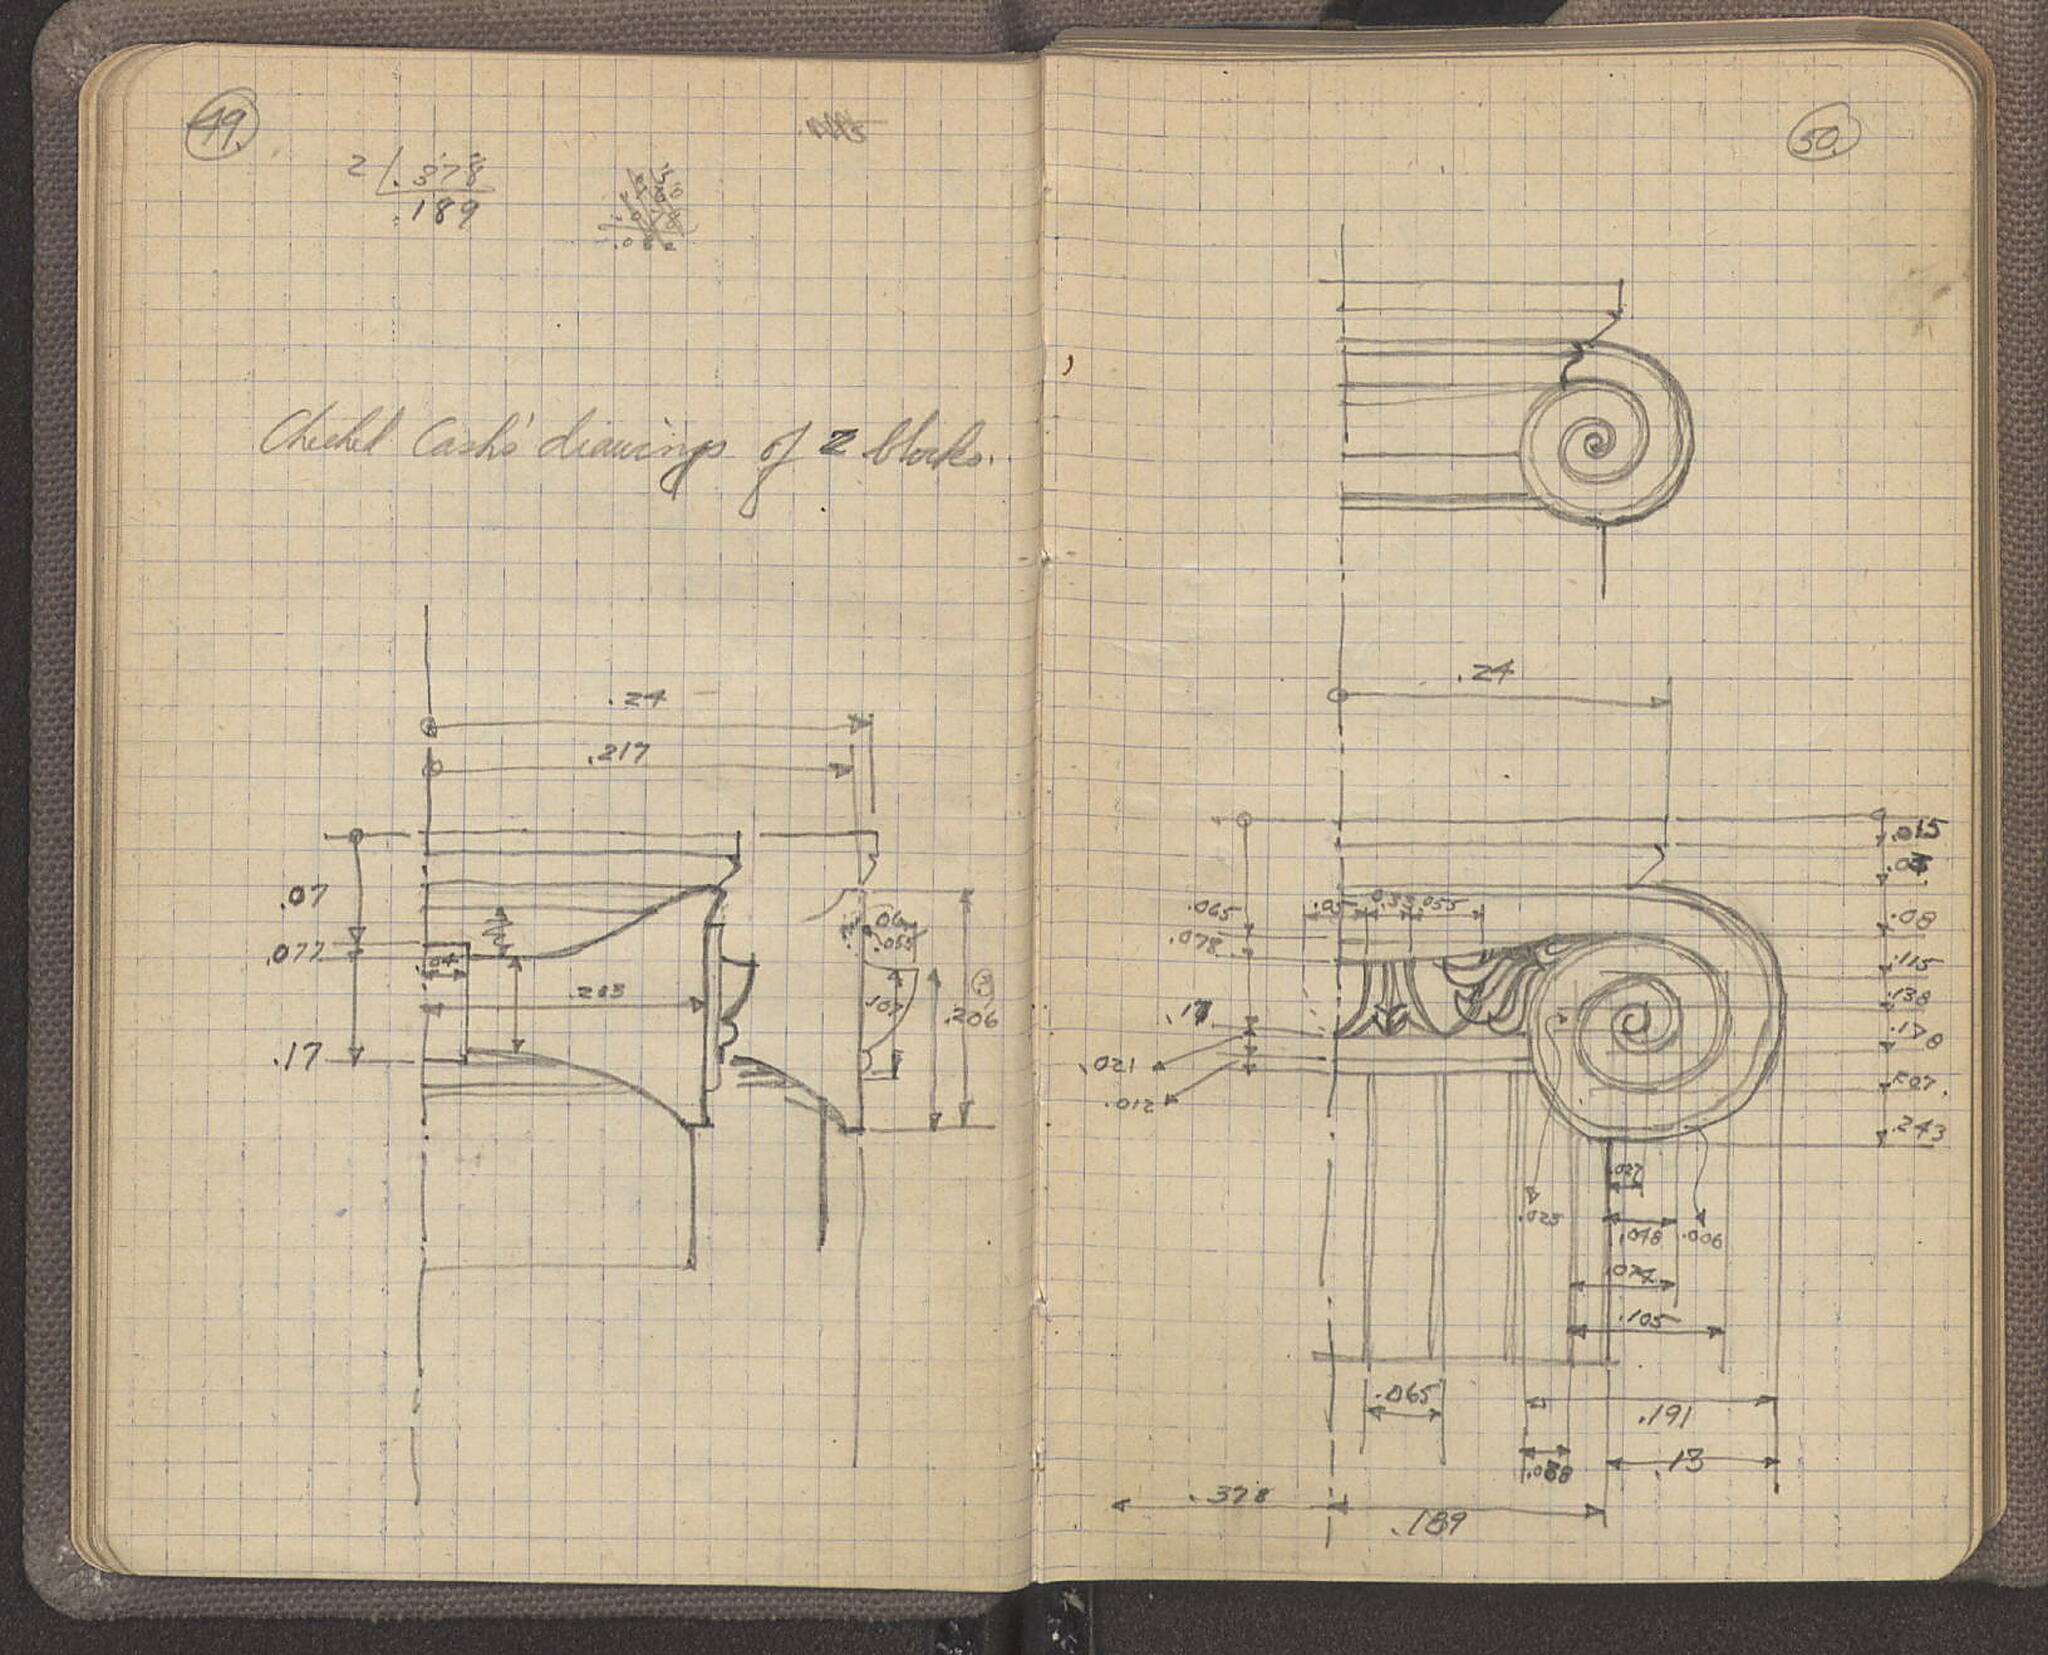 49.
2 .378
.189
Checked Cash's drawings of 2 blocks.
.24
.217
.07
.077
.04
.203
.06
.055
.107
.206
.17
50.
.24
.015
.08
.115
.138
.178
.207
.243
.065
.078
.05
.055
.17
.021
.012
.027
.025
.048
.006
.074
.105
.065
.191
.038
.13
.378
.189